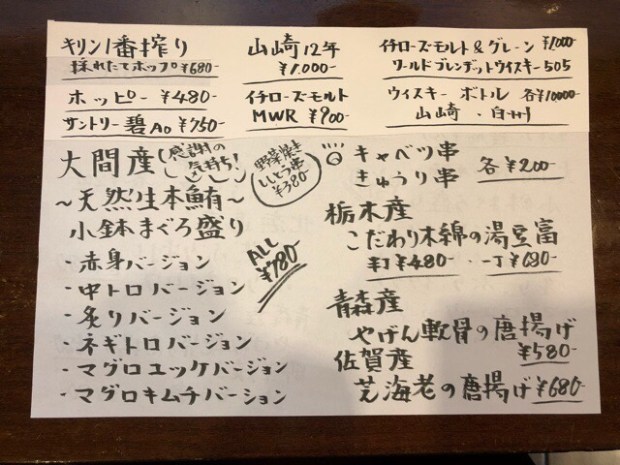 キリン1番搾り
採れたてホップ ¥680-
ホッピー ¥480-
サントリー碧Ao ¥750-
山崎12年
¥1.000-
イチローズ・モルト
MWR ¥900-
イチローズ・モルト&グレーン ¥1000-
ワールドブレンデットウイスキー505
ウイスキー ボトル 各¥10000-
山崎 ・ 白州
大間産 (感謝の気持ち!)
〜天然生本鮪〜
小鉢まぐろ盛り
・赤身バージョン
・中トロバージョン
・炙りバージョン
・ネギトロバージョン
・マグロユッケバージョン
・マグロキムチバージョン
ALL
¥780-
野菜焼き
ししとう串
¥380-
キャベツ串
きゅうり串 各¥200-
栃木産
こだわり木綿の湯豆富
半丁¥480- ・一丁¥680-
青森産
やげん軟骨の唐揚げ
¥580-
佐賀産
芝海老の唐揚げ ¥680-